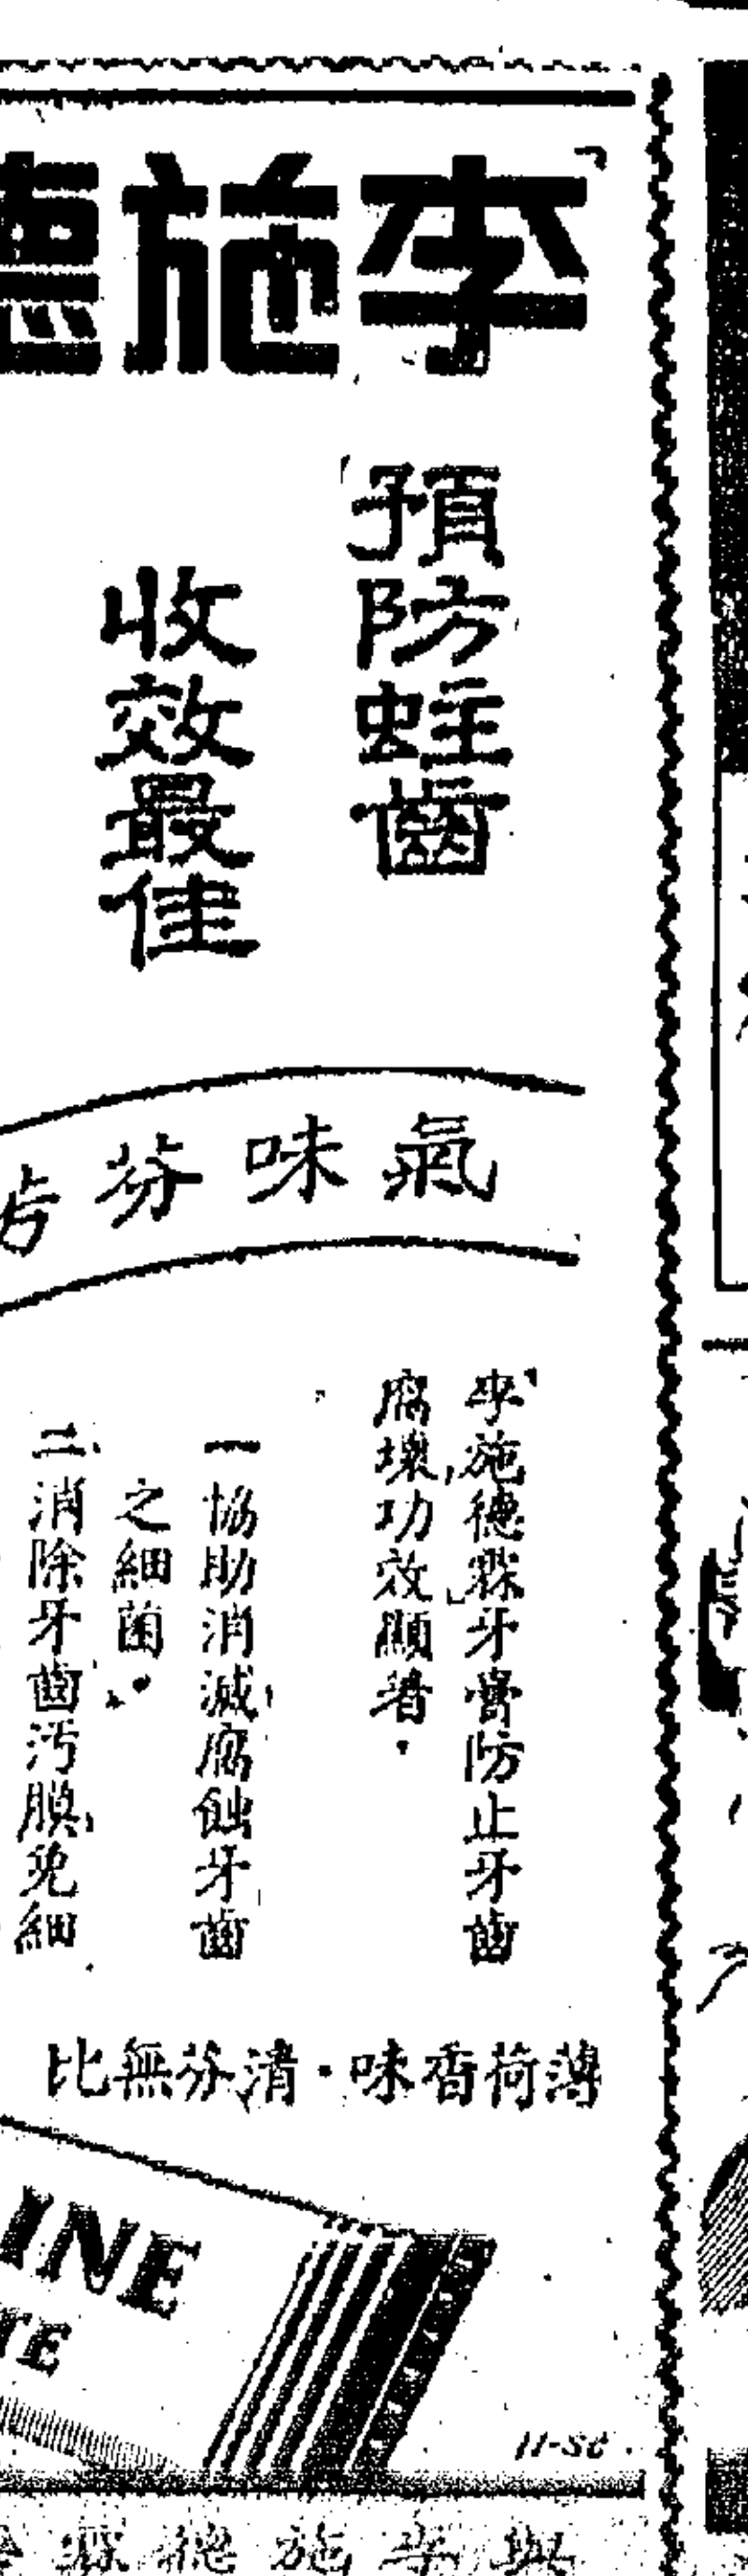 「李施德
預防蛀齒
收效最佳
氣味芬芳
「李施德霖」牙膏防止牙齒
腐壞,功效顯著．
一 協助消滅腐蝕牙齒
之細菌。
二、消除牙齒污膜,免細
薄荷香味．清芬無比
INE
TE
11-SC
與李施德霖